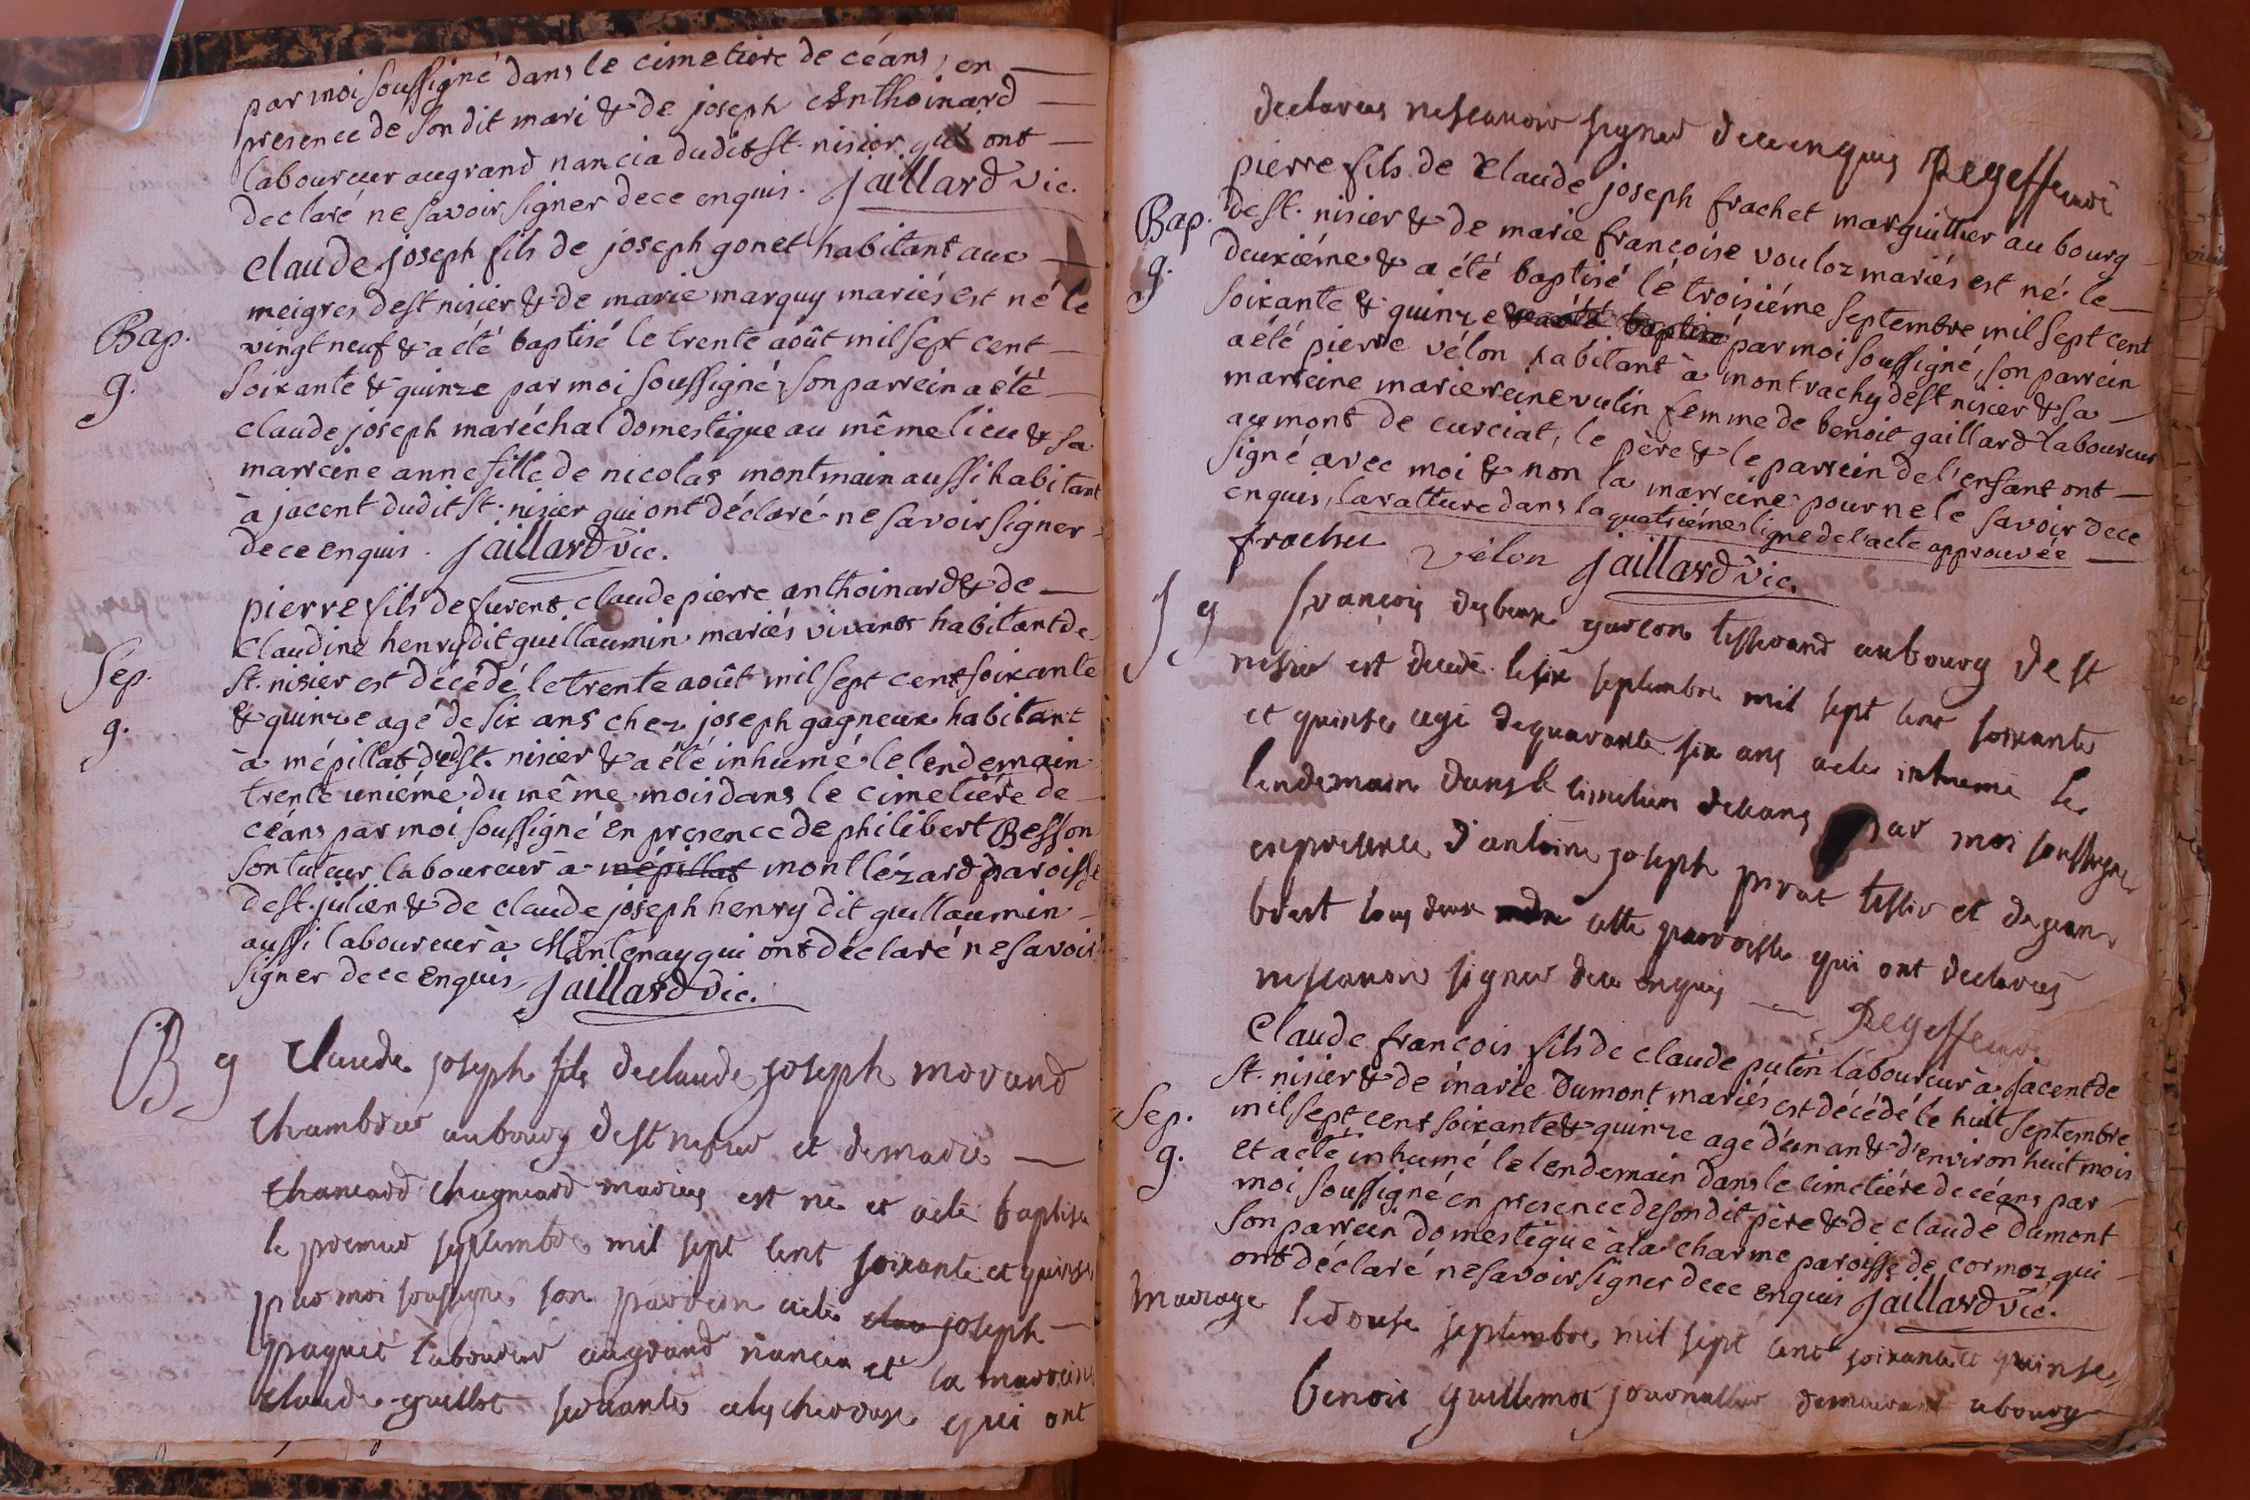 par moi soussigné dans le cimetiére de céans, en
presence de son dit mari & de joseph Anthoinard
laboureur au grand nancia dudit st. nisier qui ont
declaré ne savoir signer de ce enquis. jaillard vic.
Claude joseph fils de joseph gonet habitant aux
meigres de st nisier & de marie marquy mariés est né le
Bap. vingt neuf & a été baptisé le trente août mil sept cent
g. soixante & quinze par moi soussigné, son parrein a été
claude joseph maréchal domestique au même lieu & sa
marreine anne fille de nicolas montmain aussi habitant
à jacent dudit st. nisier qui ont déclaré ne savoir signer
de ce enquis. jaillard vic.
pierre fils de furent claude pierre anthoinard & de
Claudine henry dit guillaumin mariés vivants habitant de
Sep. st. nisier est décédé le trente août mil sept cent soixante
g. & quinze agé de six ans chez joseph gagneux habitant
à mépillat dudst. nisier & a été inhumé le lendemain
trente uniéme du même mois dans le cimetiére de
céans par moi soussigné en presence de philibert Besson
son tuteur laboureur à mépillat montlézard paroisse
de st. julien & de claude joseph henry dit guillaumin
aussi laboureur à Mantenay qui ont déclaré ne savoir
signer de ce enquis, jaillard vic.
B g Claude joseph fils de claude joseph morand
Chambrier au bourg de st nisier et de marie
Chanard Chagniard mariez est né et a ete baptisé
le premier septembre mil sept cent soixante et quinse
par moi soussigné son parrein a ete clau joseph
paquet laboureur au grand nancia et la marreine
claude guillot servante qui ont
declarez ne scavoir signer de ce enquis Regeffeme
pierre fils de Claude joseph frachet marguillier au bourg
Bap. de st. nisier & de marie francoise vouloz mariés est né le
g. deuxiéme & a été baptisé le troisiéme septembre mil sept cent
soixante & quinze & a été baptisé par moi soussigné, son parrein
a été pierre vélon habitant à montrachy de st nisier & sa
marreine marie reine vulin femme de benoit gaillard laboureur
au mont de curciat, le père & le parrein de l'enfant ont
signé avec moi & non la marreine pour ne le savoir de ce
enquis, la rature dans la quatriéme ligne de l'acte approuvée
frachet vélon jaillard vic.
S g françois desbeux garcon tisserand au bourg de st
nisier est decede le six septembre mil sept cent soixante
et quinse agé de quarante six ans a ete inhumé le
lendemain dans le cimetiere de ceans par moi soussigné
en presence d'antoine joseph perrat tessier et de jean
buat tous deux cette parroisse qui ont declarez
ne scavoir signer de ce enquis Regeffeme
Claude françois fils de claude putin laboureur à jacent de
st. nisier & de marie dumont mariés est décédé le huit septembre
Sep. mil sept cent soixante & quinze agé d'un an & d'environ huit mois
g. et a été inhumé le lendemain dans le cimetiére de céans par
moi soussigné en presence de son dit père & de claude dumont
son parrein domestique à la charme paroisse de cormoz qui
ont déclaré ne savoir signer de ce enquis jaillard vic.
Mariage le douse septembre mil sept cent soixante et quinse
benoit guillemot journallier demeurant a bourg